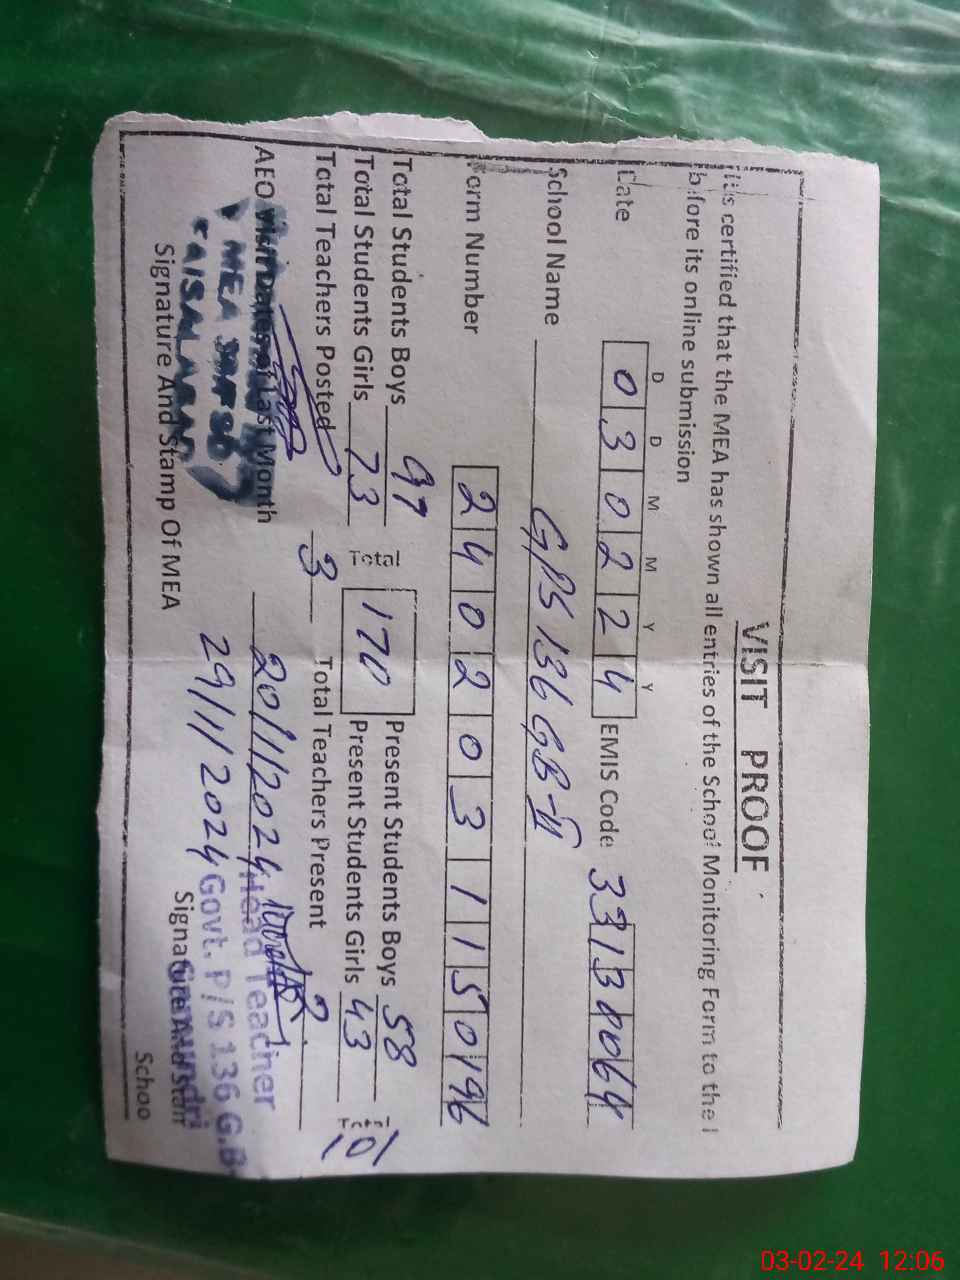 VISIT PROOF
It is certified that the MEA has shown all entries of the School Monitoring Form to the
before its online submission
D D M M Y Y
Date 0 3 0 2 2 4 EMIS Code 33130064
School Name GPS 136 GB-II
Form Number 2 4 0 2 0 3 1 1 5 0 1 9 6
Total Students Boys 97 Total 170 Present Students Boys 58
Total Students Girls 73 Present Students Girls 43 101
Total Teachers Posted 3 Total Teachers Present
AEO Visit Dates of Last Month 20/11/2024
29/11/2024
MEA
FAISALABAD
Head Teacher
Govt. P/S 136 G.B
Signature And Stamp Of MEA Signature And
Schoo
03-02-24 12:06